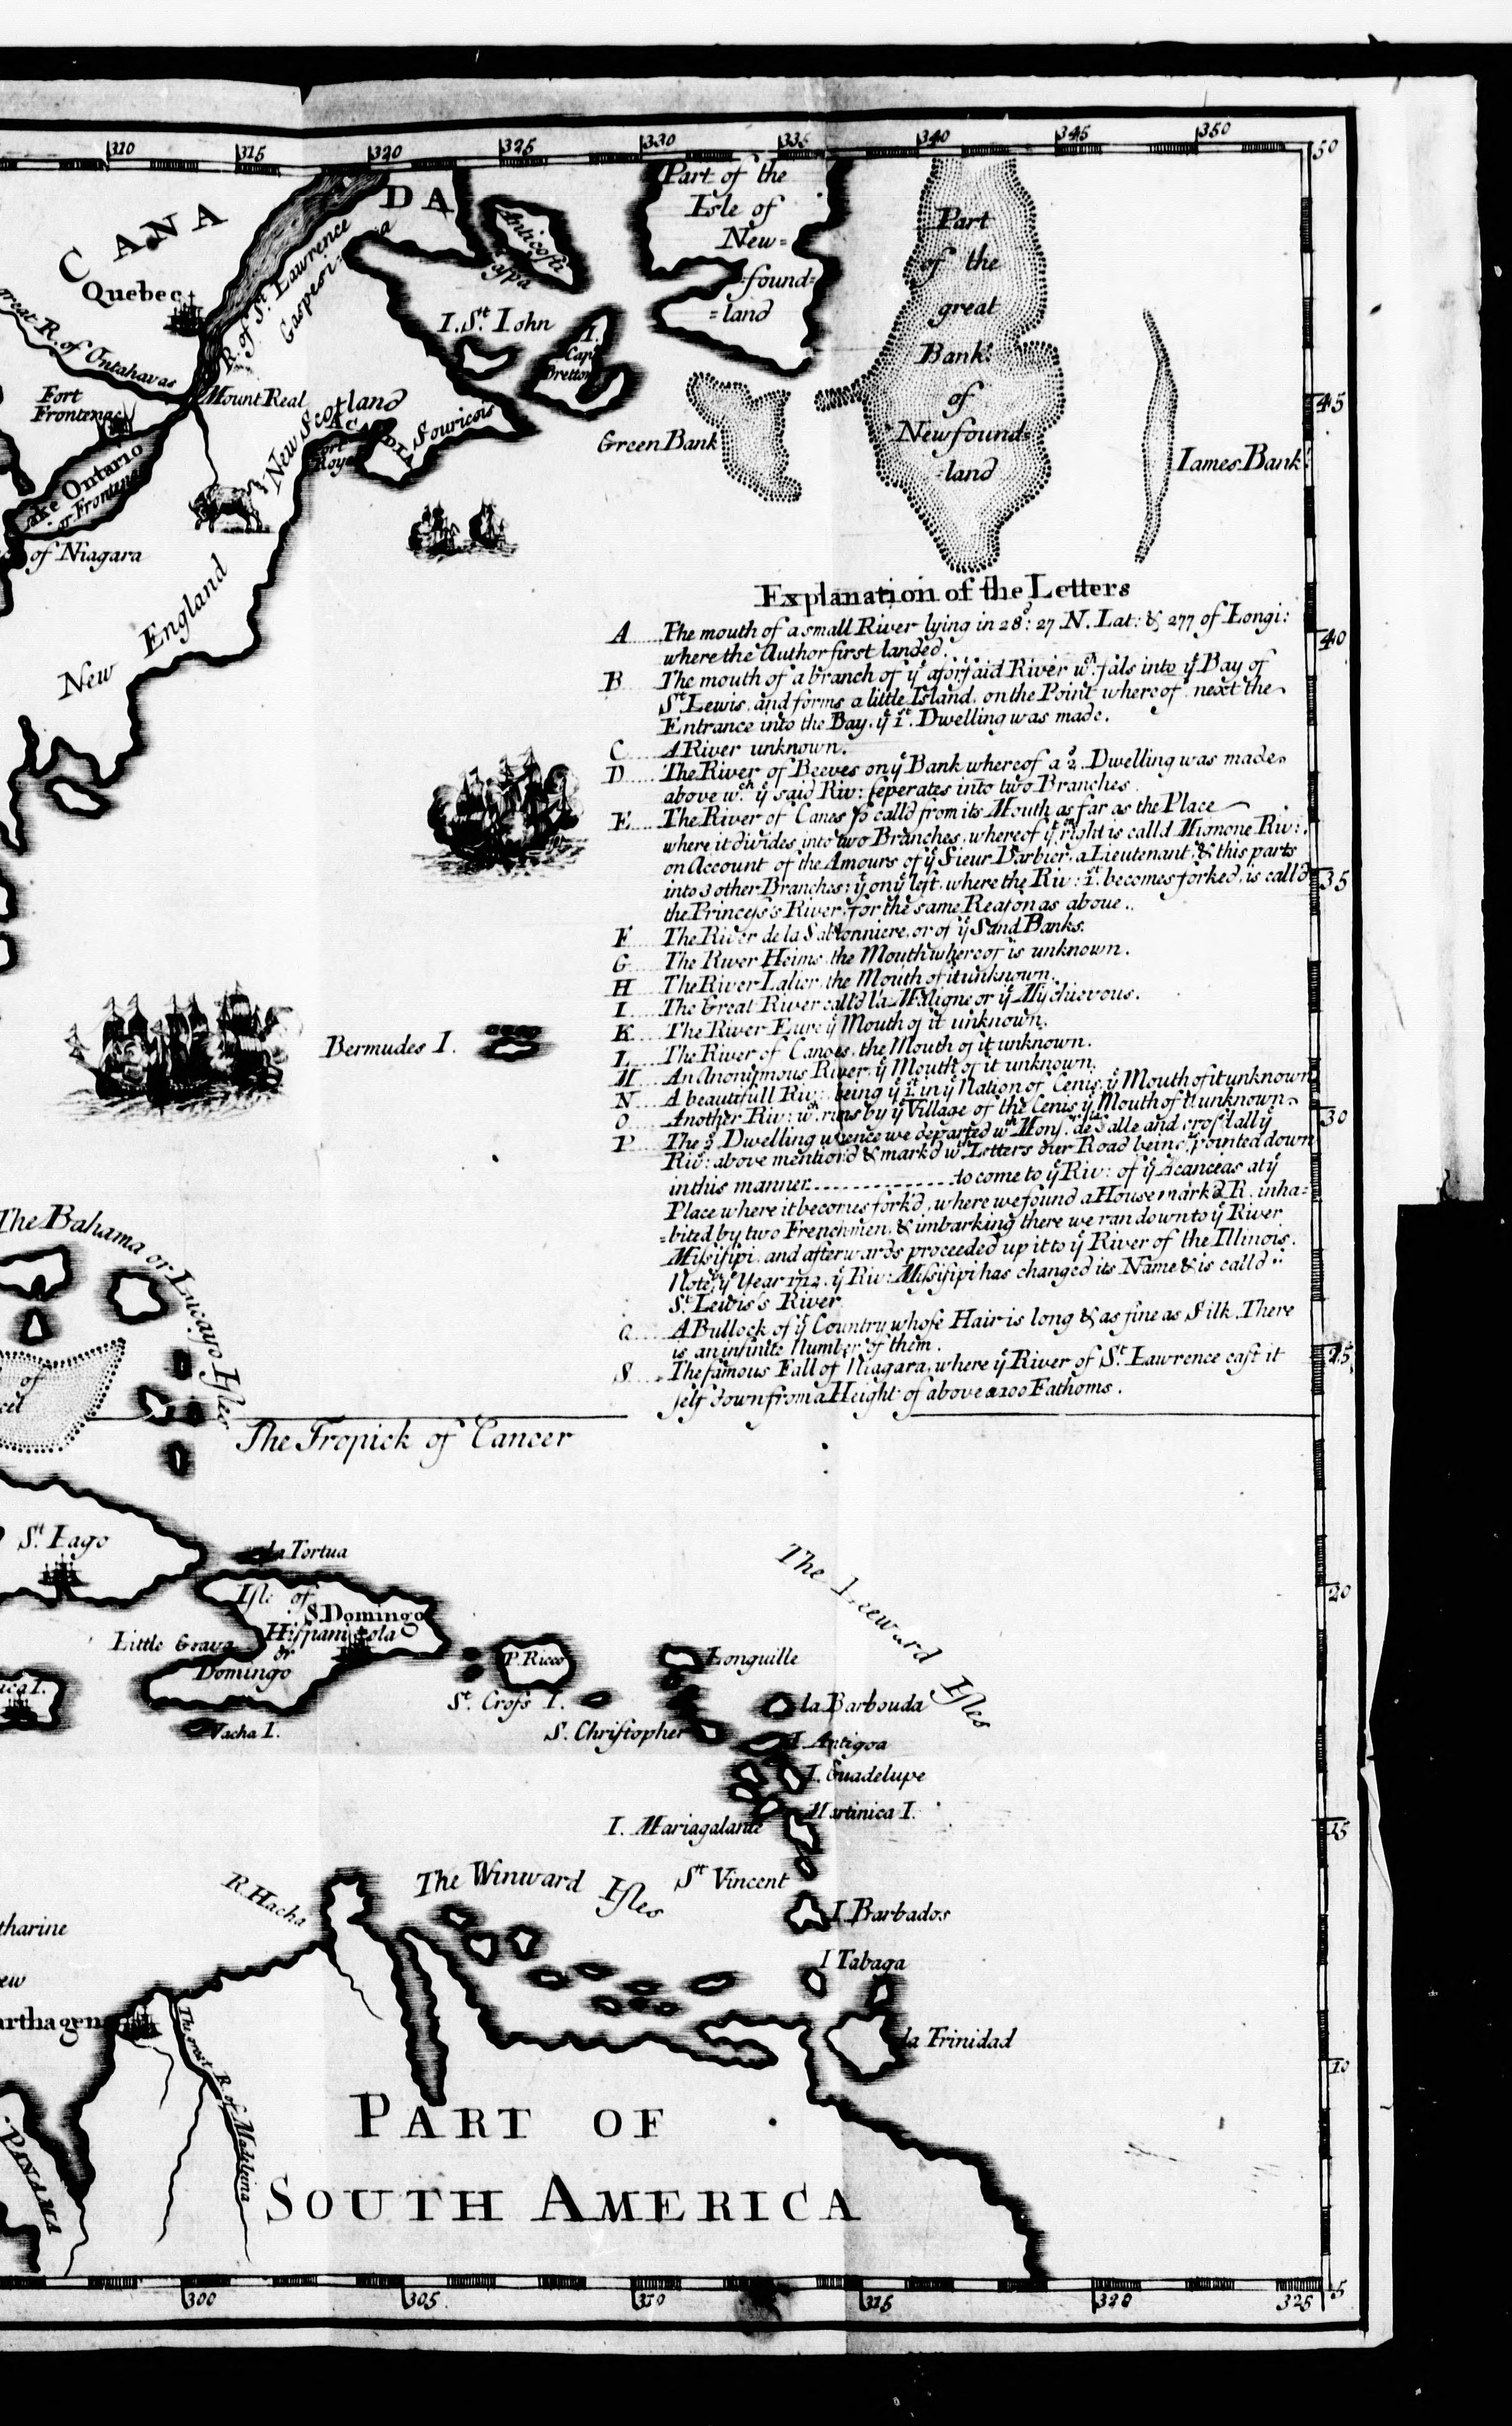 310 315 320 325 330 335 340 345 350
50
CANA
DA
Part of the
Isle of
New=
=found=
=land
Part
of the
great
Bank
of
Newfound=
=land
Anticosti
Quebec
R. of St. Lawrence
Gaspesi=
a
Gaspa
I. St. Iohn
I.
Cap
Bretton
great R. of Ontahavas
Fort
Frontenac
Mount Real
New Scotland
ACADIA
Souricois
Port
Royal
Green Bank
45
Iames Bank
Lake Ontario
or Frontenac
of Niagara
New England
Explanation of the Letters
A ..... The mouth of a small River lying in 28°: 27 N. Lat: & 277 of Longi:
where the Author first landed.
40
B The mouth of a branch of ye aforsaid River wch fals into ye Bay of
St. Lewis, and forms a little Island, on the Point whereof next the
Entrance into the Bay, ye 1st. Dwelling was made.
C .... A River unknown.
D .... The River of Beeves on ye Bank whereof a 2d. Dwelling was made
above wch. ye said Riv: seperates into two Branches.
E .... The River of Canes so calld from its Mouth as far as the Place
where it divides into two Branches, whereof yt on right is calld Mignone Riv:
on Account of the Amours of ye Sieur Barbier, a Lieutenant, & this parts
into 3 other Branches; yt on ye left, where the Riv: 1st. becomes forked, is call'd
the Princess's River, for the same Reason as above.
35
F The River de la Sablonniere, or of ye Sand Banks.
G .... The River Heims, the Mouth whereof is unknown.
H The River Lalier, the Mouth of it unknown.
I .... The Great River calld la Maligne or ye Mischievous.
K The River Eure ye Mouth of it unknown.
L .... The River of Canoes, the Mouth of it unknown.
M An Anonymous River, ye Mouth of it unknown.
N .. A beautifull Riv: being ye 1st in ye Nation of Cenis, ye Mouth of it unknown
O .... Another Riv: wch runs by ye Village of the Cenis ye Mouth of it unknown
30
P .... The Dwelling whence we departed wth Monsr. de la Salle and cross'd all ye
Riv: above mention'd & mark'd wth Letters our Road being pointed down
in this manner ............... to come to ye Riv: of ye Acanceas at ye
Place where it becomes fork'd, where we found a House mark'd R. inha=
=bited by two Frenchmen, & imbarking there we ran down to ye River
Missisipi, and afterwards proceeded up it to ye River of the Illinois.
Note, ye Year 1712, ye Riv: Missisipi has changed its Name & is calld
St. Lewis's River
.... A Bullock of ye Country whose Hair is long & as fine as Silk. There
is an infinite Number of them.
25
S .. The famous Fall of Niagara, where ye River of St. Lawrence cast it
self down from a Height of above 100 Fathoms.
Bermudes I.
The Bahama or Lucayo Isles
of
The Tropick of Cancer
St. Iago
la Tortua
20
Isle of
S. Domingo
Hispaniola
or
Domingo
Little Grava
Vacha I.
ica I.
P. Ricco
St. Cross I.
The Leeward Isles
Longuille
la Barbouda
S. Christopher
I Antigoa
I. Guadelupe
Martinica I.
15
I. Mariagalante
St Vincent
The Winward Isles
I. Barbados
I Tabaga
R. Hacha
tharine
ew
arthagena
The great R. of Madelena
PANAMA
la Trinidad
10
PART OF
SOUTH AMERICA
5
300 305 310 315 320 325